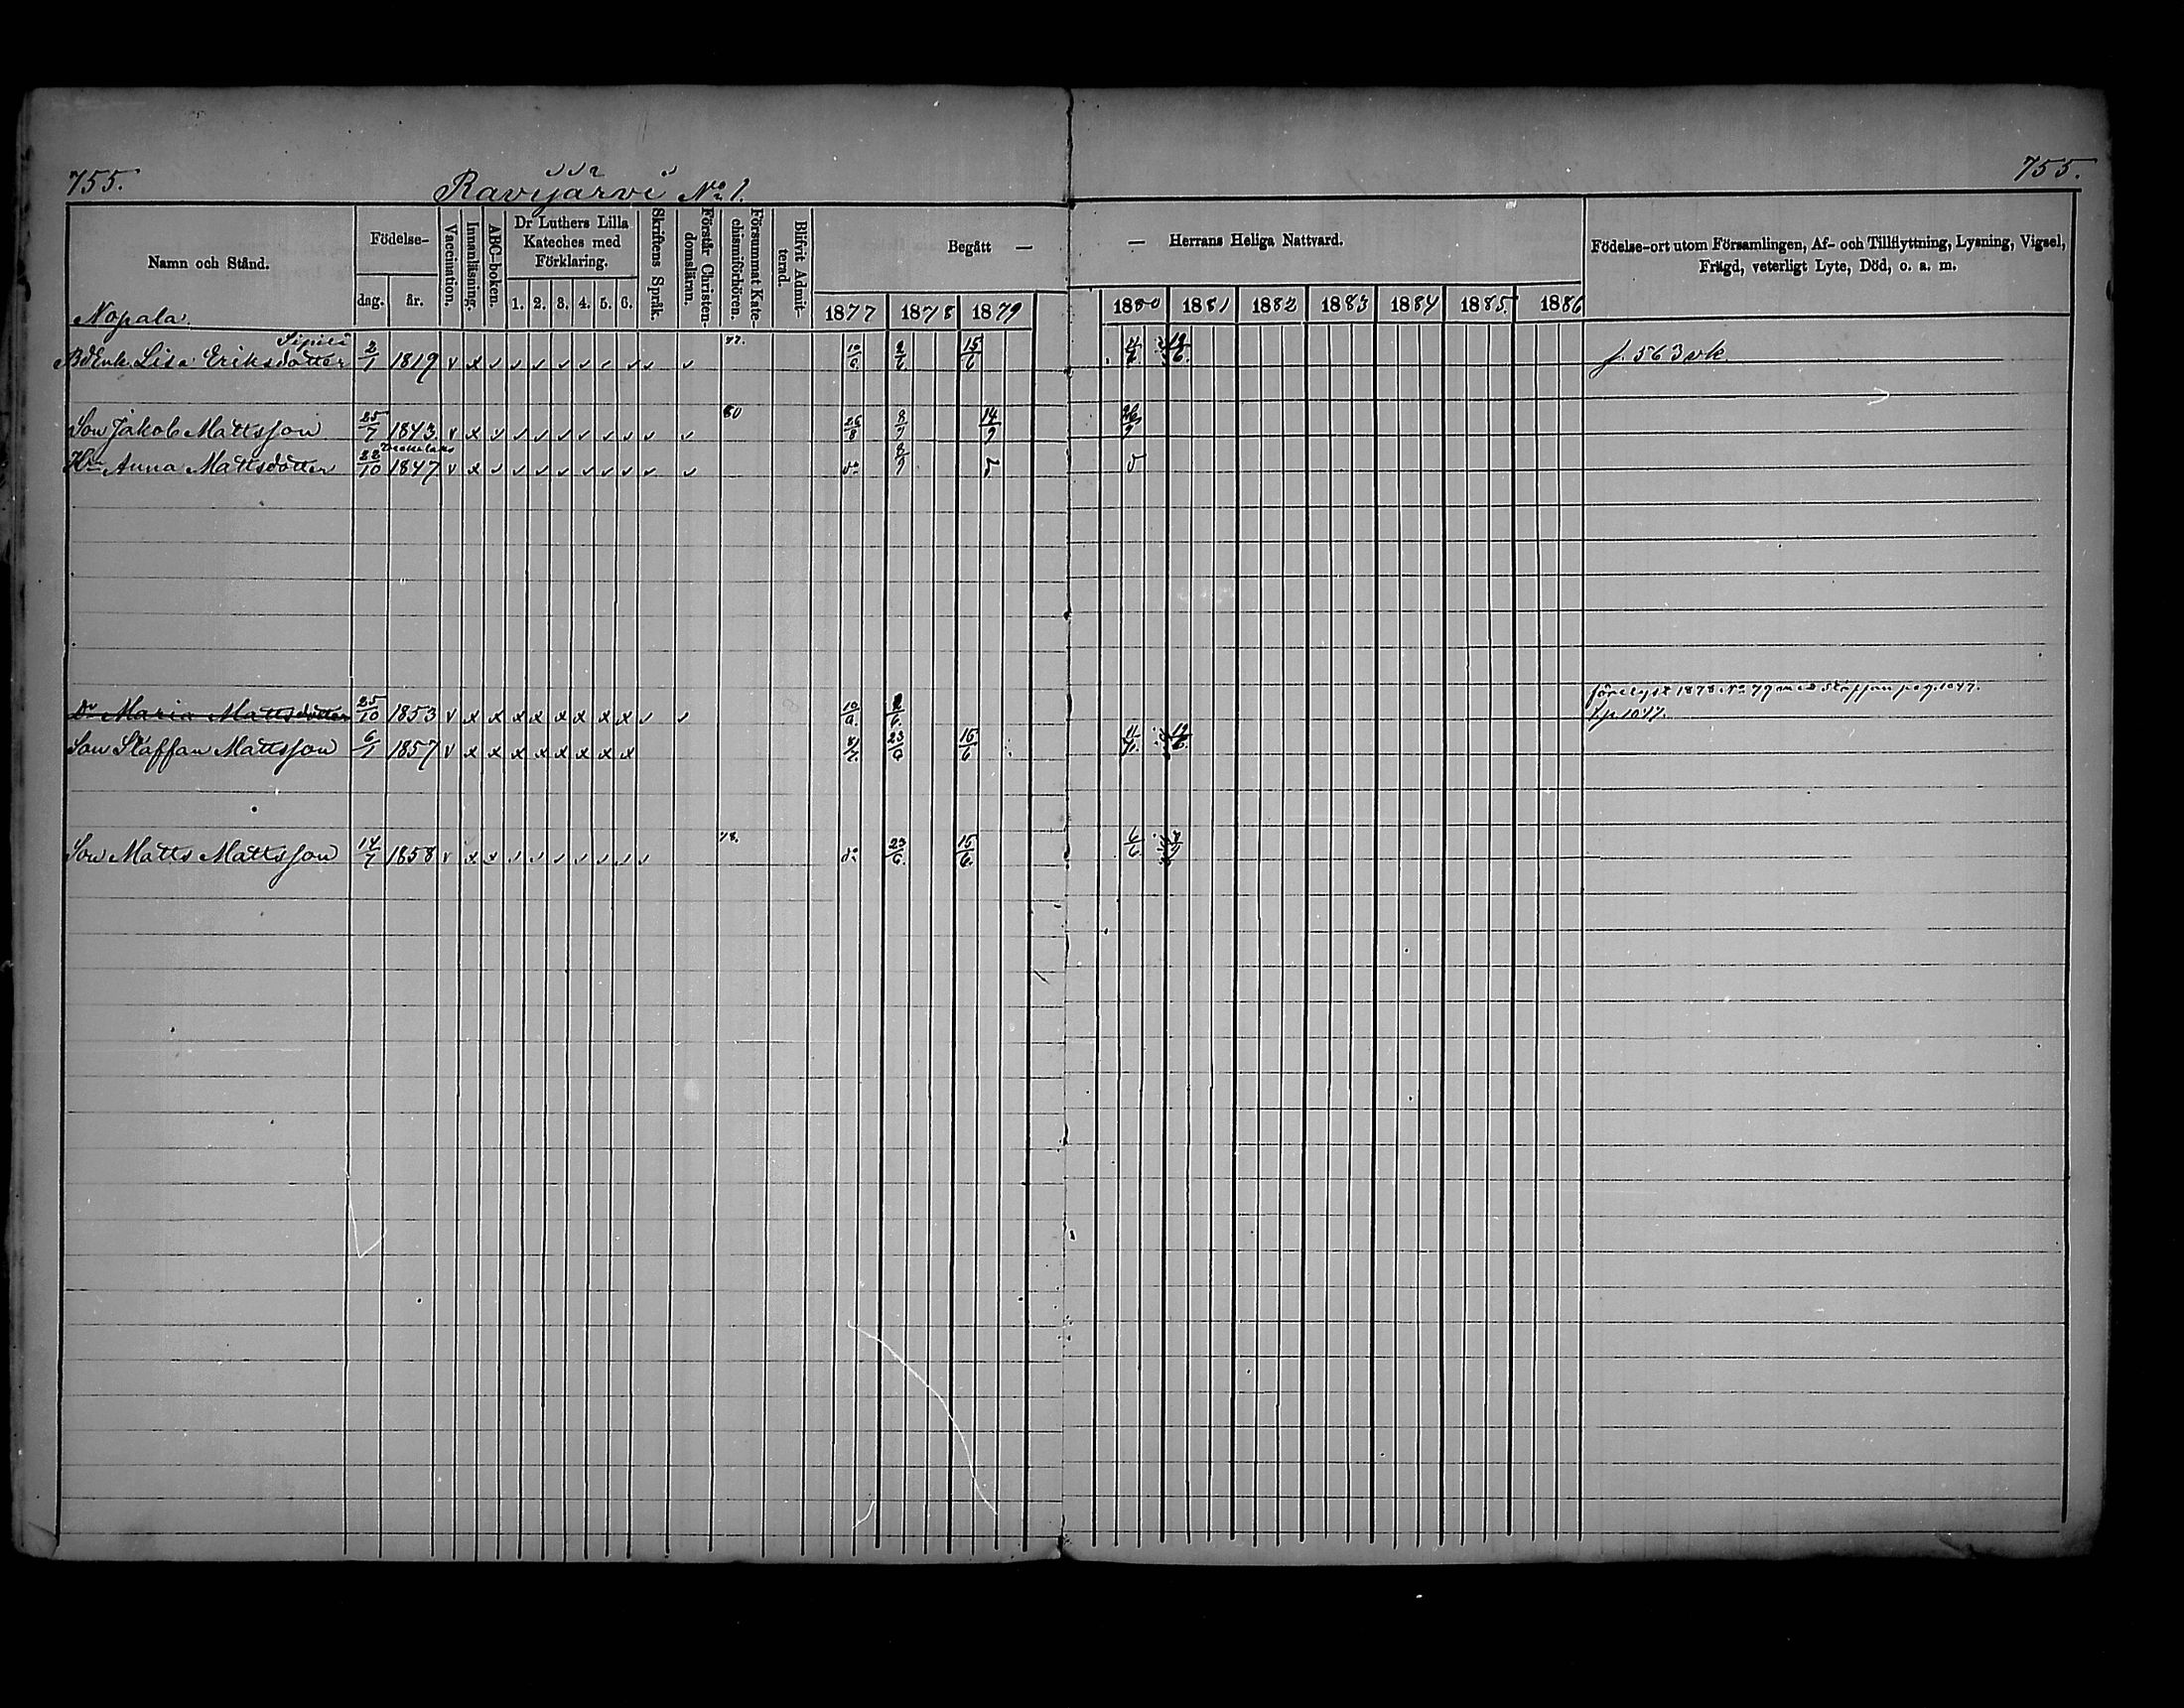 755.
755.
Ravijärvi No 1.
Namn och Stånd.
Födelse-
dag. år.
Vaccination.
Innanläsning.
ABC-boken.
Dr Luthers Lilla
Kateches med
Förklaring.
1. 2. 3. 4. 5. 6.
Skriftens Språk.
Förstår Christen-
domsläran.
Försummat Kate-
chismiförhören.
Blifvit Admit-
terad.
Begått —
— Herrans Heliga Nattvard.
1877 1878 1879
1880 1881 1882 1883 1884 1885. 1886
Födelse-ort utom Församlingen, Af- och Tillflyttning, Lysning, Vigsel,
Frägd, veterligt Lyte, Död, o. a. m.
Nopala.
Lisa Eriksdotter 2/1 1819 v x 77. 10/6 2/6 15/6
f. 563 vk.
Son Jakob Mattsson 25/7 1843 v x 80 26/8 8/9 14/9 26/9
Hu Anna Mattsdotter 28/10 1847 v x do 8/9
Dr Maria Mattsdotter 25/10 1853 v x x x x x x x x 10/6 2/6.
förelyst 1878 No 79 med Staffan pag. 1047.
t.p 1047.
Son Staffan Mattsson 6/1 1857 v x x x x x x x x 23/6 15/6
Son Matts Mattsson 14/7 1858 v x x 78. do 23/6. 15/6. 6/6.